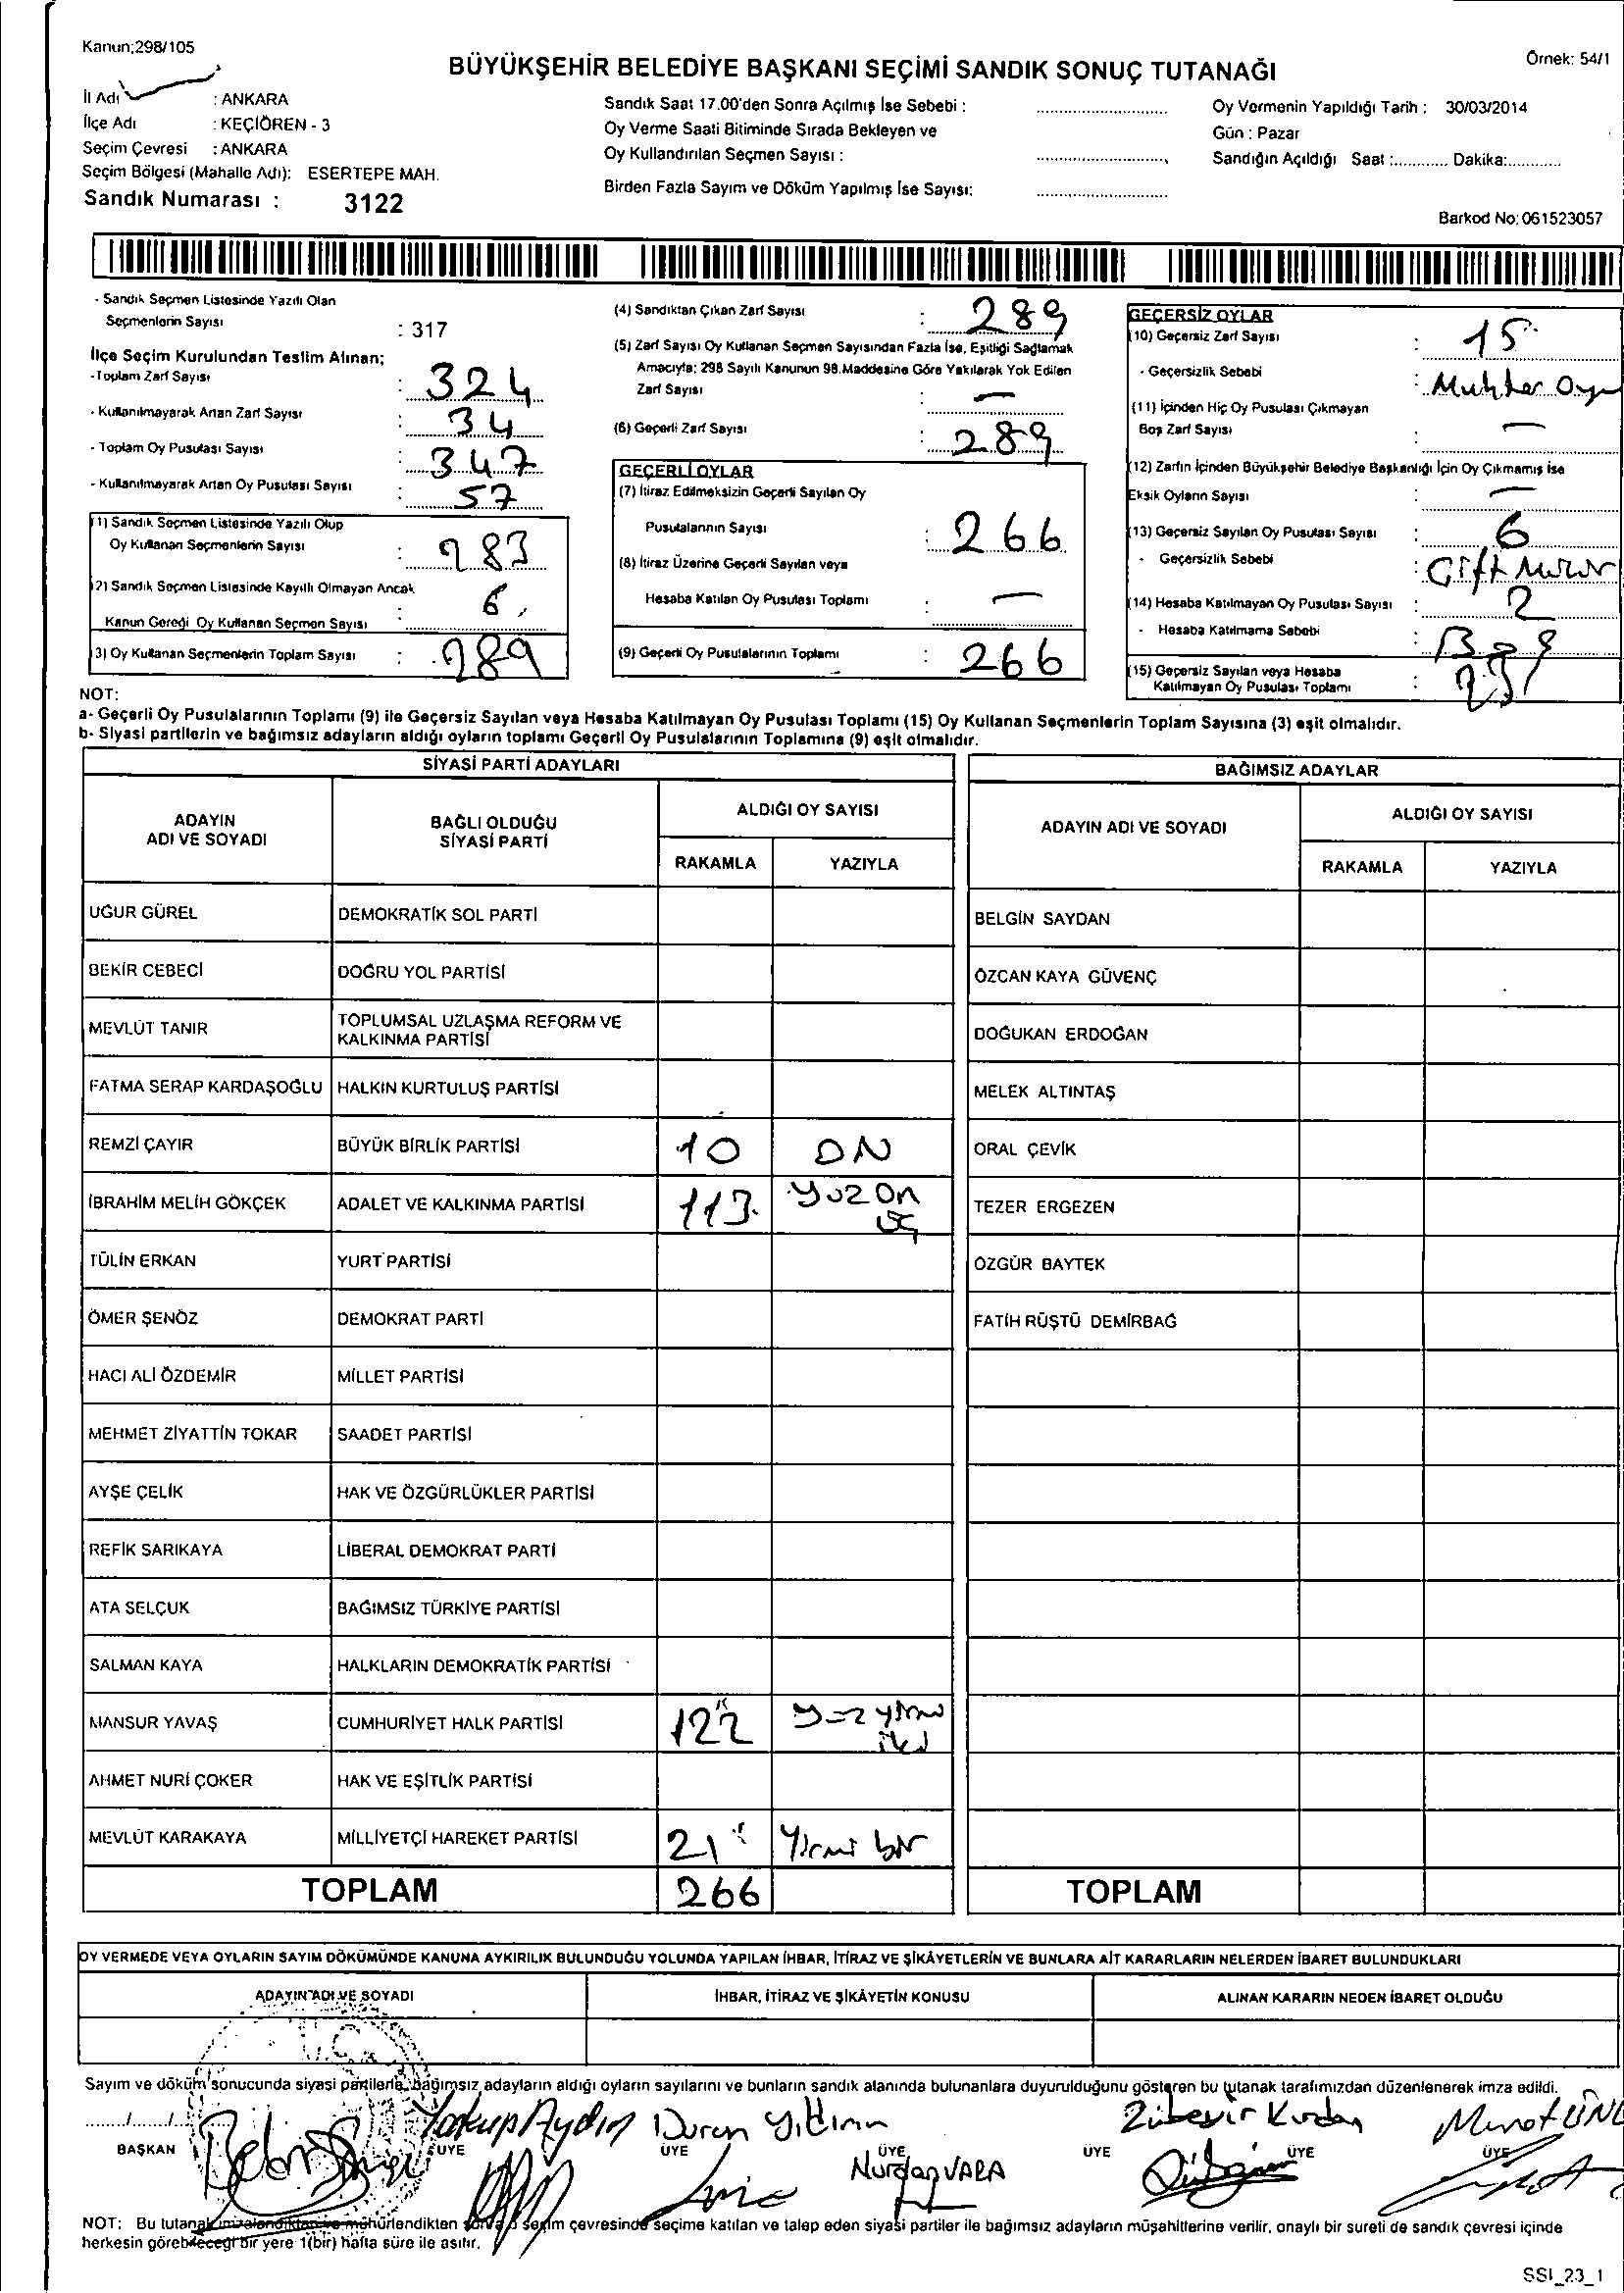 Kanun;298/105
Örnek: 54/1
BÜYÜKŞEHİR BELEDİYE BAŞKANI SEÇİMİ SANDIK SONUÇ TUTANAĞI
İl Adı : ANKARA
İlçe Adı : KEÇİÖREN - 3
Seçim Çevresi : ANKARA
Seçim Bölgesi (Mahalle Adı): ESERTEPE MAH.
Sandık Numarası : 3122
Sandık Saat 17.00'den Sonra Açılmış İse Sebebi :
Oy Verme Saati Bitiminde Sırada Bekleyen ve
Oy Kullandırılan Seçmen Sayısı :
Birden Fazla Sayım ve Döküm Yapılmış İse Sayısı:
Oy Vermenin Yapıldığı Tarih : 30/03/2014
Gün : Pazar
Sandığın Açıldığı Saat :............ Dakika:............
Barkod No: 061523057
- Sandık Seçmen Listesinde Yazılı Olan
Seçmenlerin Sayısı : 317
İlçe Seçim Kurulundan Teslim Alınan;
-Toplam Zarf Sayısı : 324
- Kullanılmayarak Artan Zarf Sayısı : 34
- Toplam Oy Pusulası Sayısı : 347
- Kullanılmayarak Artan Oy Pusulası Sayısı : 57
(1) Sandık Seçmen Listesinde Yazılı Olup
Oy Kullanan Seçmenlerin Sayısı : 283
(2) Sandık Seçmen Listesinde Kayıtlı Olmayan Ancak
Kanun Gereği Oy Kullanan Seçmen Sayısı : 6
(3) Oy Kullanan Seçmenlerin Toplam Sayısı : 289
(4) Sandıktan Çıkan Zarf Sayısı : 289
(5) Zarf Sayısı Oy Kullanan Seçmen Sayısından Fazla İse, Eşitliği Sağlamak
Amacıyla; 298 Sayılı Kanunun 98.Maddesine Göre Yakılarak Yok Edilen
Zarf Sayısı : —
(6) Geçerli Zarf Sayısı : 289
GEÇERLİ OYLAR
(7) İtiraz Edilmeksizin Geçerli Sayılan Oy
Pusulalarının Sayısı : 266
(8) İtiraz Üzerine Geçerli Sayılan veya
Hesaba Katılan Oy Pusulası Toplamı : —
(9) Geçerli Oy Pusulalarının Toplamı : 266
GEÇERSİZ OYLAR
(10) Geçersiz Zarf Sayısı : 15
- Geçersizlik Sebebi : Muhtar Oyu
(11) İçinden Hiç Oy Pusulası Çıkmayan
Boş Zarf Sayısı : —
(12) Zarfın İçinden Büyükşehir Belediye Başkanlığı İçin Oy Çıkmamış İse
Eksik Oyların Sayısı : —
(13) Geçersiz Sayılan Oy Pusulası Sayısı : 6
- Geçersizlik Sebebi : Çift Mühür
(14) Hesaba Katılmayan Oy Pusulası Sayısı : 2
- Hesaba Katılmama Sebebi : Boş
(15) Geçersiz Sayılan veya Hesaba
Katılmayan Oy Pusulası Toplamı :
NOT:
a- Geçerli Oy Pusulalarının Toplamı (9) ile Geçersiz Sayılan veya Hesaba Katılmayan Oy Pusulası Toplamı (15) Oy Kullanan Seçmenlerin Toplam Sayısına (3) eşit olmalıdır.
b- Siyasi partilerin ve bağımsız adayların aldığı oyların toplamı Geçerli Oy Pusulalarının Toplamına (9) eşit olmalıdır.
SİYASİ PARTİ ADAYLARI
ADAYIN ADI VE SOYADI
BAĞLI OLDUĞU SİYASİ PARTİ
ALDIĞI OY SAYISI
RAKAMLA YAZIYLA
UĞUR GÜREL DEMOKRATİK SOL PARTİ
BEKİR CEBECİ DOĞRU YOL PARTİSİ
MEVLÜT TANIR TOPLUMSAL UZLAŞMA REFORM VE KALKINMA PARTİSİ
FATMA SERAP KARDAŞOĞLU HALKIN KURTULUŞ PARTİSİ
REMZİ ÇAYIR BÜYÜK BİRLİK PARTİSİ 10 ON
İBRAHİM MELİH GÖKÇEK ADALET VE KALKINMA PARTİSİ 113 yüz On üç
TÜLİN ERKAN YURT PARTİSİ
ÖMER ŞENÖZ DEMOKRAT PARTİ
HACI ALİ ÖZDEMİR MİLLET PARTİSİ
MEHMET ZİYATTİN TOKAR SAADET PARTİSİ
AYŞE ÇELİK HAK VE ÖZGÜRLÜKLER PARTİSİ
REFİK SARIKAYA LİBERAL DEMOKRAT PARTİ
ATA SELÇUK BAĞIMSIZ TÜRKİYE PARTİSİ
SALMAN KAYA HALKLARIN DEMOKRATİK PARTİSİ
MANSUR YAVAŞ CUMHURİYET HALK PARTİSİ 122 yüz yirmi iki
AHMET NURİ ÇOKER HAK VE EŞİTLİK PARTİSİ
MEVLÜT KARAKAYA MİLLİYETÇİ HAREKET PARTİSİ 21 Yirmi bir
TOPLAM 266
BAĞIMSIZ ADAYLAR
ADAYIN ADI VE SOYADI
ALDIĞI OY SAYISI
RAKAMLA YAZIYLA
BELGİN SAYDAN
ÖZCAN KAYA GÜVENÇ
DOĞUKAN ERDOĞAN
MELEK ALTINTAŞ
ORAL ÇEVİK
TEZER ERGEZEN
ÖZGÜR BAYTEK
FATİH RÜŞTÜ DEMİRBAĞ
TOPLAM
OY VERMEDE VEYA OYLARIN SAYIM DÖKÜMÜNDE KANUNA AYKIRILIK BULUNDUĞU YOLUNDA YAPILAN İHBAR, İTİRAZ VE ŞİKÂYETLERİN VE BUNLARA AİT KARARLARIN NELERDEN İBARET BULUNDUKLARI
ADAYIN ADI VE SOYADI
İHBAR, İTİRAZ VE ŞİKÂYETİN KONUSU
ALINAN KARARIN NEDEN İBARET OLDUĞU
Sayım ve döküm sonucunda siyasi partilerle, bağımsız adayların aldığı oyların sayılarını ve bunların sandık alanında bulunanlara duyurulduğunu gösteren bu tutanak tarafımızdan düzenlenerek imza edildi.
......./......./
Yakup Aydın Duran Yıldırım Zübeyir Kurdan Murat ÜNL
BAŞKAN ÜYE ÜYE ÜYE ÜYE ÜYE ÜYE
Nurdan VARA
NOT: Bu tutanak imzalandıktan ve mühürlendikten sonra o seçim çevresinde seçime katılan ve talep eden siyasi partiler ile bağımsız adayların müşahitlerine verilir, onaylı bir sureti de sandık çevresi içinde
herkesin görebileceği bir yere 1(bir) hafta süre ile asılır.
SSI_23_1